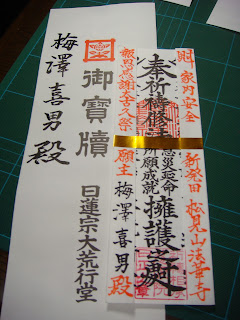 家内安全 新發田 松光山法華寺
奉祈祷修法
息災延命
所願成就
擁護之処
願主 梅澤喜男殿
御寶牘 日蓮宗大荒行堂
梅澤喜男殿